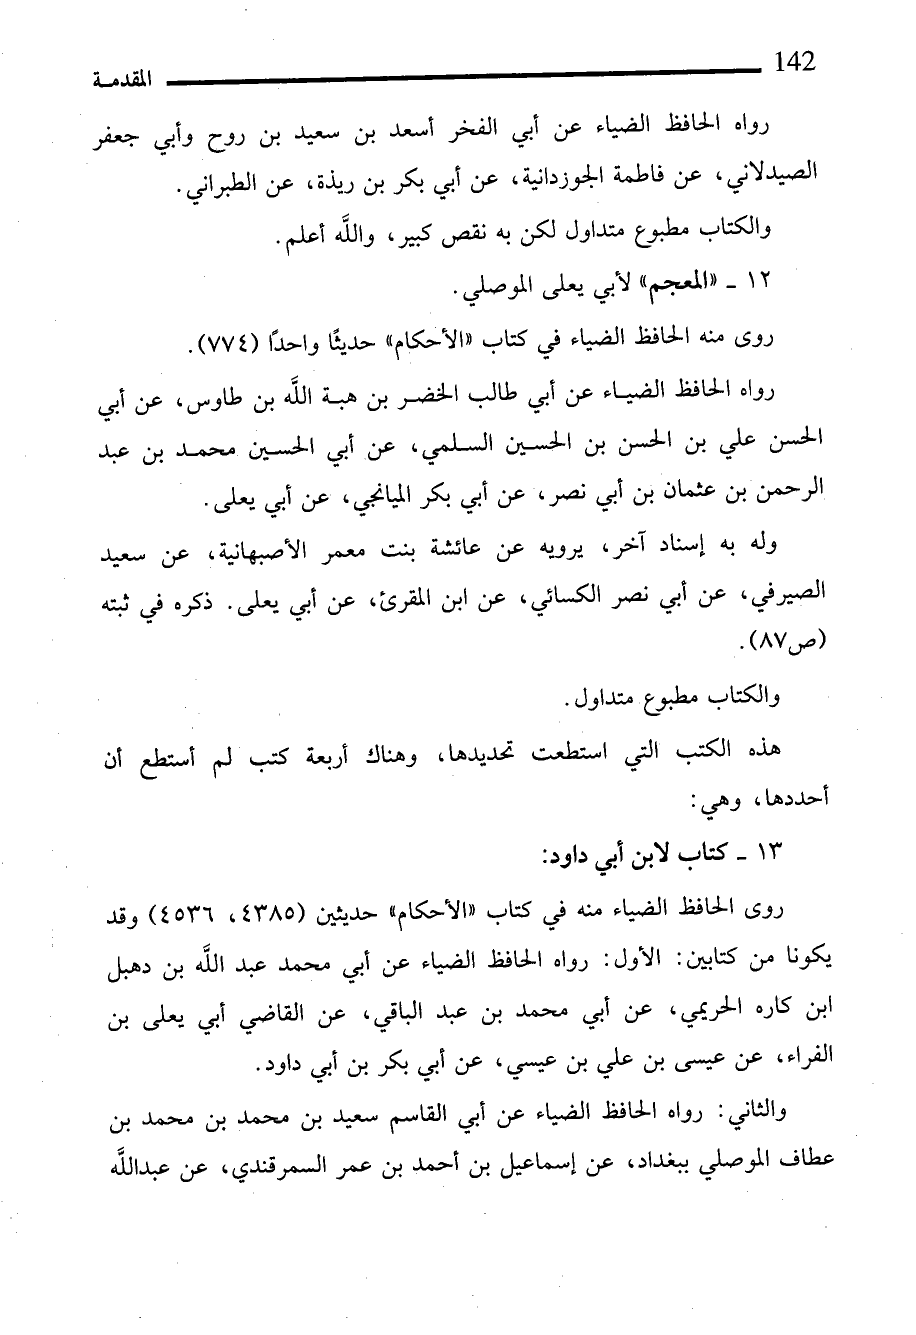 142 المقدمـة
رواه الحافظ الضياء عن أبي الفخر أسعد بن سعيد بن روح وأبي جعفر
الصيدلاني، عن فاطمة الجوزدانية، عن أبي بكر بن ريذة، عن الطبراني.
والكتاب مطبوع متداول لكن به نقص كبير، واللَّه أعلم.
١٢ ـ «المعجم» لأبي يعلى الموصلي.
روى منه الحافظ الضياء في كتاب «الأحكام» حديثًا واحدًا (٧٧٤).
رواه الحافظ الضيـاء عن أبي طالب الخضـر بن هبـة اللَّه بن طاوس، عن أبي
الحسن علي بن الحسن بن الحسين السـلمي، عن أبي الحسـين محمـد بن عبد
الرحمن بن عثمان بن أبي نصر، عن أبي بكر الميانجي، عن أبي يعلى.
وله به إسناد آخر، يرويه عن عائشة بنت معمر الأصبهانية، عن سعيد
الصيرفي، عن أبي نصر الكسائي، عن ابن المقرئ، عن أبي يعلى. ذكره في ثبته
(ص٨٧).
والكتاب مطبوع متداول.
هذه الكتب التي استطعت تحديدها، وهناك أربعة كتب لم أستطع أن
أحددها، وهي:
١٣ ـ كتاب لابن أبي داود:
روى الحافظ الضياء منه في كتاب «الأحكام» حديثين (٤٣٨٥، ٤٥٣٦) وقد
يكونا من كتابين: الأول: رواه الحافظ الضياء عن أبي محمد عبد اللَّه بن دهبل
ابن كاره الحريمي، عن أبي محمد بن عبد الباقي، عن القاضي أبي يعلى بن
الفراء، عن عيسى بن علي بن عيسي، عن أبي بكر بن أبي داود.
والثاني: رواه الحافظ الضياء عن أبي القاسم سعيد بن محمد بن محمد بن
عطاف الموصلي ببغداد، عن إسماعيل بن أحمد بن عمر السمرقندي، عن عبداللَّه